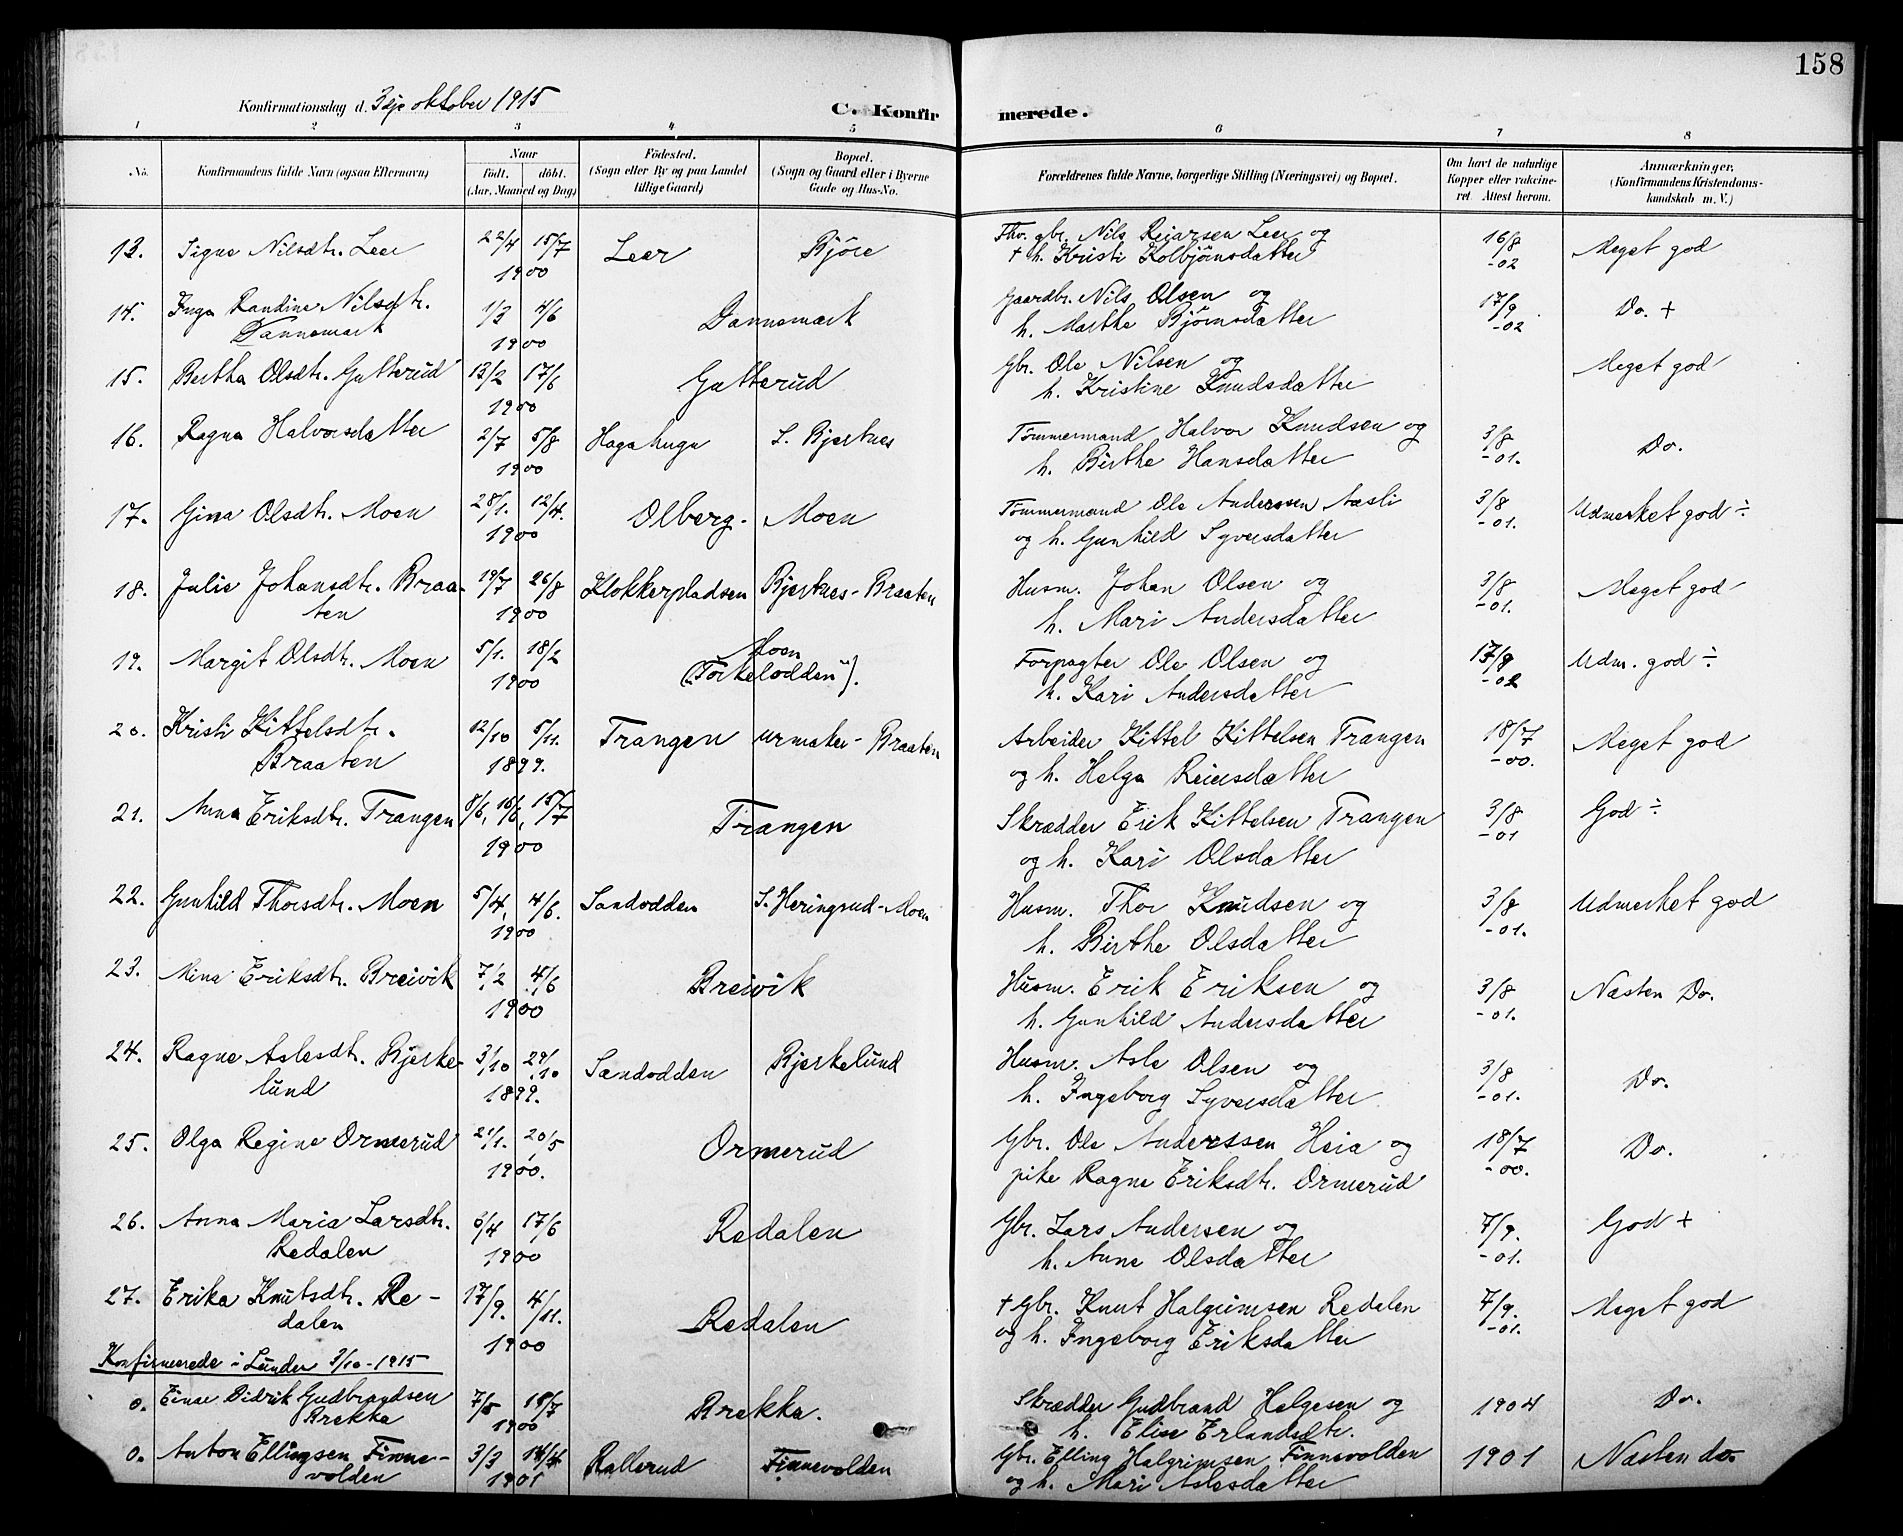 158
Konfirmationsdag d. 3dje oktober 1915
C. Konfirmerede.
1 2 3 4 5 6 7 8
No. Konfirmandens fulde Navn (ogsaa Efternavn) Naar født. døbt. (Aar, Maaned og Dag) Födested. (Sogn eller By og paa Landet tillige Gaard) Bopæl. (Sogn og Gaard eller i Byerne Gade og Hus-No. Forældrenes fulde Navne, borgerlige Stilling (Næringsvei) og Bopæl. Om havt de naturlige Kopper eller vakcineret. Attest herom. Anmærkninger, (Konfirmandens Kristendomskundskab m. V.)
13. Signe Nilsdtr. Leer 22/4 15/7 1900 Leer Björe Nils Reiarsen Leer og † h. Kristi Kolbjörnsdatter 16/8 -02 Meget god
14. Inga Randine Nilsdtr. Dannemark 1/3 4/6 1900 Dannemark Gaardbr. Nils Olsen og h. Marthe Björnsdatter 17/9 -02 Do. +
15. Bertha Olsdtr. Gutterud 13/2 17/6 1900 Gutterud Gbr. Ole Nilsen og h. Kristine Knudsdatter Meget god
16. Ragna Halvorsdatter 2/7 5/8 1900 Hagahugu S. Bjertnes Tömmermand Halvor Knudsen og h. Birthe Hansdatter 3/8 -01. Do.
17. Gina Olsdtr. Moen 28/1. 12/4. 1900 Olberg - Moen Tömmermand Ole Anderssen Aasli og h. Gunhild Syversdatter 3/8 -01. Udmerket god ÷
18. Julie Johansdtr. Braaten 19/7 26/8 1900 Klokkerpladsen Bjertnes-Braaten Husm. Johan Olsen og h. Mari Andersdatter 3/8 -01. Meget god
19. Margit Olsdtr. Moen 5/1. 18/2 1900 Moen (Torkelodden). Forpagter Ole Olsen og h. Kari Andersdatter 17/9 -02 Udm. god ÷
20. Kristi Kittelsdtr. Braaten 12/10 5/11. 1899. Trangen urmaker-Braaten Arbeider Kittel Kittelsen Trangen og h. Helga Reiersdatter 18/7 -00. Meget god
21. Anna Eriksdtr. Trangen 8/6, 16/6, 15/7 1900 Trangen Skrædder Erik Kittelsen Trangen og h. Kari Olsdatter 3/8 -01 God ÷
22. Gunhild Thorsdtr. Moen 5/4, 4/6. 1900 Sandodden S. Heringsrud-Moen Husm. Thor Knudsen og h. Birthe Olsdatter 3/8 -01. Udmerket god
23. Mina Eriksdtr. Breivik 7/2 4/6 1900 Breivik Husm. Erik Eriksen og h. Gunhild Andersdatter 3/8 -01. Næsten Do.
24. Ragne Aslesdtr. Bjerkelund 3/10 29/10 1899. Sandodden Bjerkelund Husm. Asle Olsen og h. Ingeborg Syversdatter 3/8 -01. Do.
25. Olga Regine Ormerud 21/1. 20/5 1900. Ormerud Gbr. Ole Anderssen Heia og pike Ragne Eriksdtr. Ormerud 18/7 -00. Do.
26. Anna Maria Larsdtr. Redalen 6/4 17/6 1900 Redalen Gbr. Lars Andersen og h. Anne Olsdatter 7/9. -01. God +
27. Erika Knutsdtr. Redalen 17/9. 4/11. 1900 Redalen † Gbr. Knut Halgrimsen Redalen og h. Ingeborg Eriksdatter 7/9. -01. Meget god
Konfirmerede i Lunder 3/10-1915
0. Einar Didrik Gudbrandsen Brekke 7/5 18/7 1900 Brekka. Skrædder Gudbrand Helgesen og h. Elise Erlandsdtr. 1904 Do.
0. Anton Ellingsen Finnevolden 3/3 14/4 1901 Rallerud Finnevolden Gbr. Elling Halgrimsen Finnevolden og h. Mari Aslesdatter 1901 Næsten do.